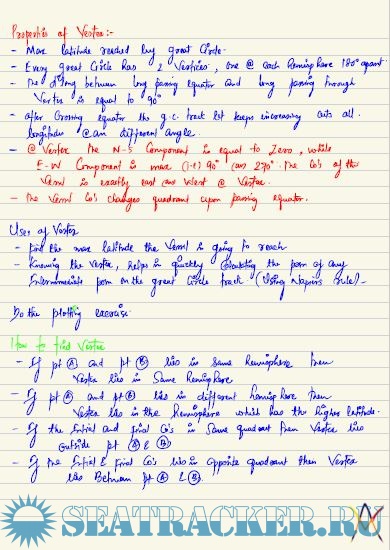 Properties of Vertex :-
- Max latitude reached by great Circle.
- Every great Circle has 2 Vertices, one @ each hemisphere 180° apart.
- The d'long between long passing equator and long passing through
Vertex is equal to 90°
- after Crossing equator the g.c. track let keeps increasing cuts all
longitudes @ an different angle.
- @ Vertex the N-S Component is equal to Zero, while
E-W Component is max (i-e) 90° (or) 270°. The Co's of the
Vessel is exactly east or West @ Vertex.
- The Vessel Co's changes quadrant upon passing equator.
Uses of Vertex
- find the max latitude the Vessel is going to reach
- Knowing the Vertex, helps in quickly Calculating the posn of any
Intermmediate posn on the great Circle track (Using Napiers Rule)-
Do the plotting exercise
How to find Vertex
- If pt (A) and pt (B) lies in Same hemisphere then
Vertex lies in Same hemisphere
- If pt (A) and pt (B) lies in different hemisphere then
Vertex lies in the hemisphere which has the higher latitude.
- If the Initial and final Co's in Same quadrant then Vertex lies
outside pt (A) & (B)
- If the Initial & final Co's lies in opposite quadrant then Vertex
lies Between pt (A) & (B).
SEATRACKER.RU